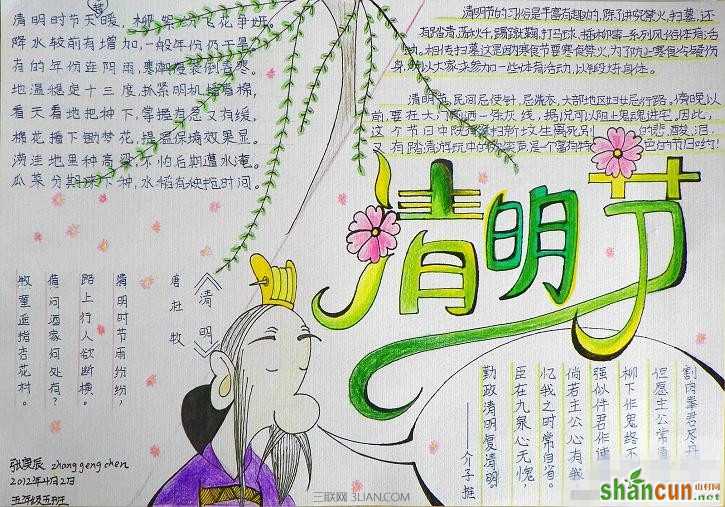 清明时节天暖，柳絮纷飞花争妍。
降水较前有增加，一般年份仍干旱。
有的年份连阴雨，寒潮侵袭倒春寒。
地温稳定十三度，抓紧时机播春棉，
看天看地把种下，掌握有急又有缓，
棉花播下锄梦花，提温保墒效果显。
涝洼地里种高粱，不怕后期遭水淹。
瓜菜分期来下种，水稻育秧抢时间。
清明节的习俗是丰富有趣的，除了讲究禁火、扫墓，还
有踏青、荡秋千、踢蹴鞠、打马球、插柳等一系列风俗体育活
动。相传这是因寒食节要寒食禁火，为了防止寒食冷餐伤
身，所以大家来参加一些体育活动，以锻炼身体。
清明节，民间忌使针，忌洗衣，大部地区妇女忌行路。傍晚以
前，要在大门前洒一条灰线，据说可以阻止鬼魂进宅。因此，
这个节日中既有祭扫新坟生离死别的悲酸泪，
又有踏清游玩中的欢笑声，是一个富有特色的节日哟！
清明节
《清明》
唐 杜牧
清明时节雨纷纷，
路上行人欲断横。
借问酒家何处有？
牧童遥指杏花村。
割肉奉君尽丹
但愿主公常清
柳下作鬼终不
强似伴君作谏
倘若主公心有我
忆我之时常自省。
臣在九泉心无愧，
勤政清明复清明。
——介子推
zhang geng chen
2012年4月2日
五年级五班
三联网 3LIAN.COM
shancun
山村网
.net